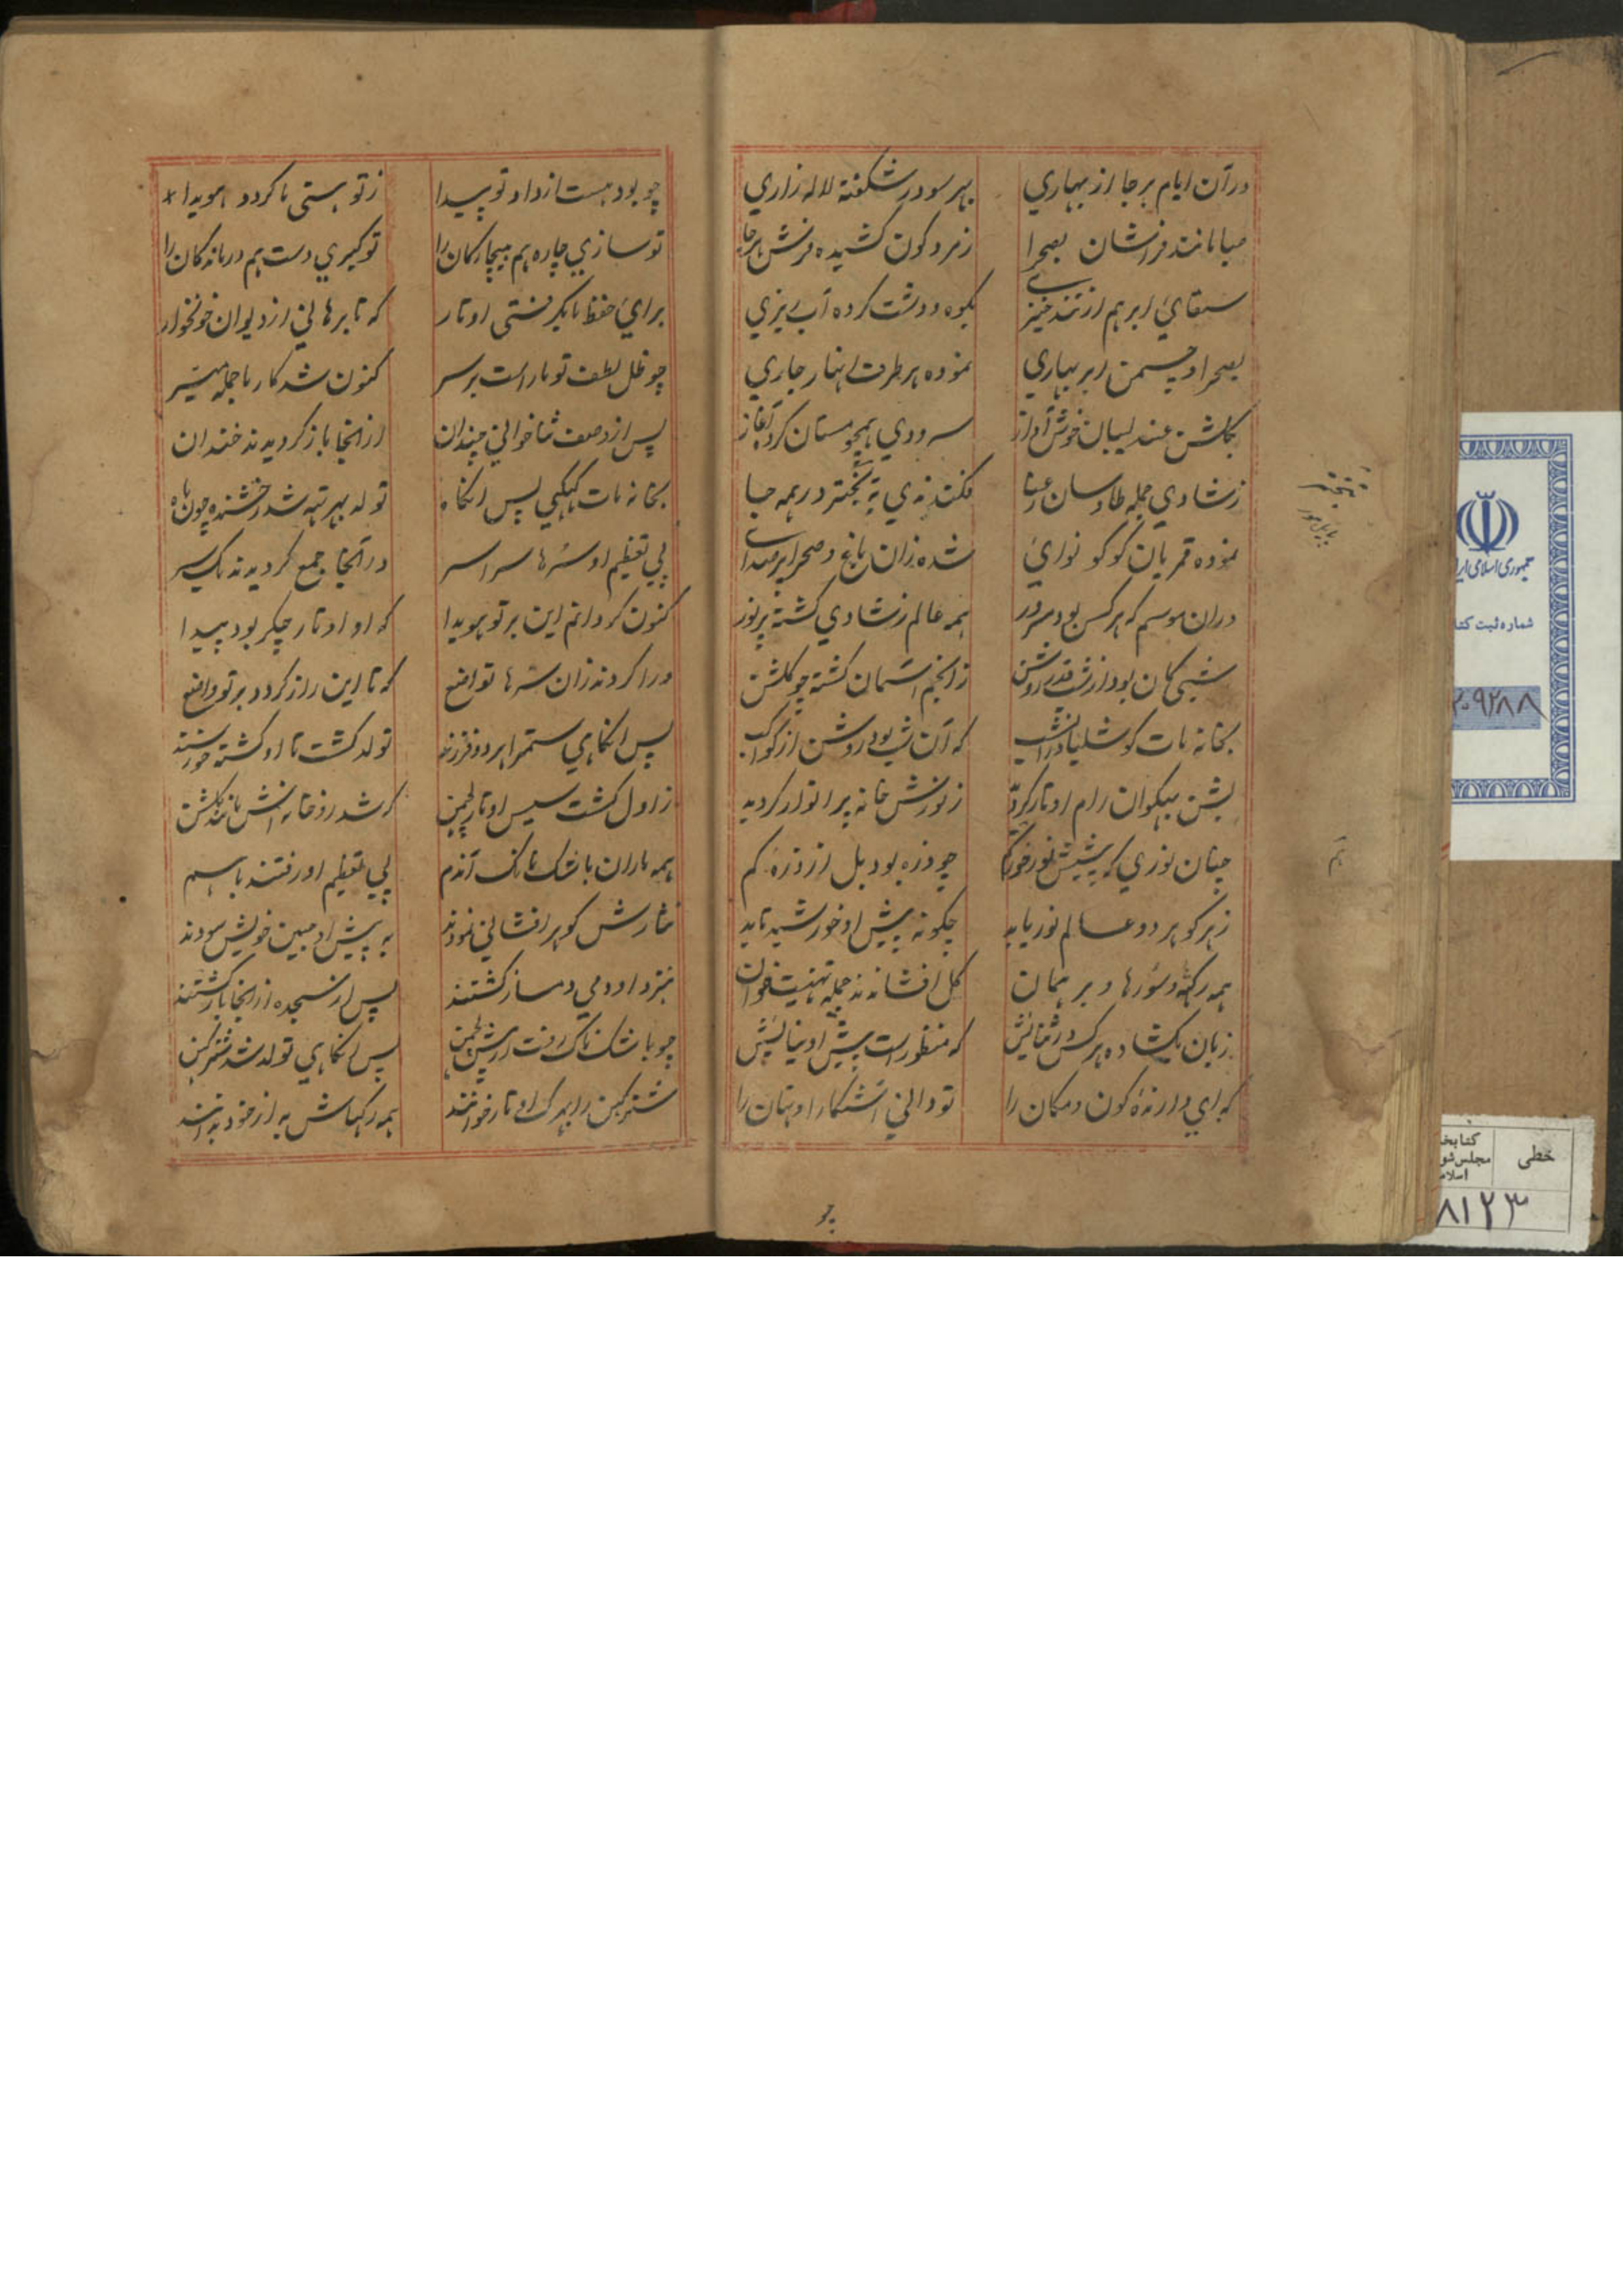 در آن ایام هر جا از بهاری بهر سو در شکفته لاله زاری
صبا مانند فراشان بصحرا زمرد کون کشیده فرش هر جا
سقای ابر هم از تند خیزی بکوه و دشت کرده آب ریزی
بصحرا و چمن ابر بهاری نموده هر طرف انهار جاری
بکلشن عندلیبان خوش آواز سرودی همچو مستان کرد آغاز
ز شادی جمله طاوسان رعنا در همه جا
نموده قمریان کوکو نوای شده زان باغ و صحرا پر صدای
دران موسم که هر کس بود مسرور همه عالم ز شادی کشته پر نور
شبی کان بود از شب قدر روشن ز انجم آسمان کشته چو کلشن
بخانه مات کوشلیا در انشب که آن شب بود روشن از کواکب
بشن بهکوان رام اوتار کردید ز نورش خانه پر انوار کردید
چنان نوری که پیشش نور خور کم چو ذره بود بل از ذره کم
ز هر کو هر دو عالم نور یابد چکونه پیش او خورشید تابد
همه رکهه و سورها و برهمان کل افشاندند جمله تهنیت خوان
زبان بکشاده هر کس در ثنایش که منظور است پیش او نیایش
که ای دارنده کون و مکان را تو دانی آشکارا و نهان را
چو
چو بود هست از داد تو پیدا ز تو هستی ما کردد هویدا
تو سازی چاره هم بیچارکان را تو کیری دست هم درماندکان را
برای حفظ ما بکرفتی اوتار که تا برهانی از دیوان خونخوار
چو ظل لطف تو ما راست بر سر کنون شد کار ما جمله میسر
پس از وصف ثنا خوانی چندان از انجا باز کردیدند خندان
بخانه مات کیکیی پس انکاه تولد بهرتهه شد رخشنده چون ماه
پی تعظیم او سرها سراسر در انجا جمع کردیدند یکسر
کنون کردانم این بر تو هویدا که او اوتار چکر بود پیدا
ورا کردند زان سرها تواضع که تا این راز کردد بر تو واضع
پس انکاهی ستمرا هر دو فرزند تولد کشت تا او کشته خورسند
ز اول کشت سیس اوتار لچمن که شد زو خانه اش مانند کلشن
همه ماران باشک ناک آندم پی تعظیم او رفتند با هم
نثارش کوهر افشانی نمودند به پیش او جبین خویش سودند
بنزد او دمی دمساز کشتند پس از سجده از انجا باز کشتند
چو باشک ناک رفت از پیش لچمن پس انکاهی تولد شد شترکهن
شترکهن را بهرک اوتار خوانند همه رکهاش به از خود بدانند
جمهوری اسلامی ایر
شماره ثبت کتا
۲۰۹۲۸۸
خطی
کتابخا
مجلس شو
اسلام
۸۱۲۳